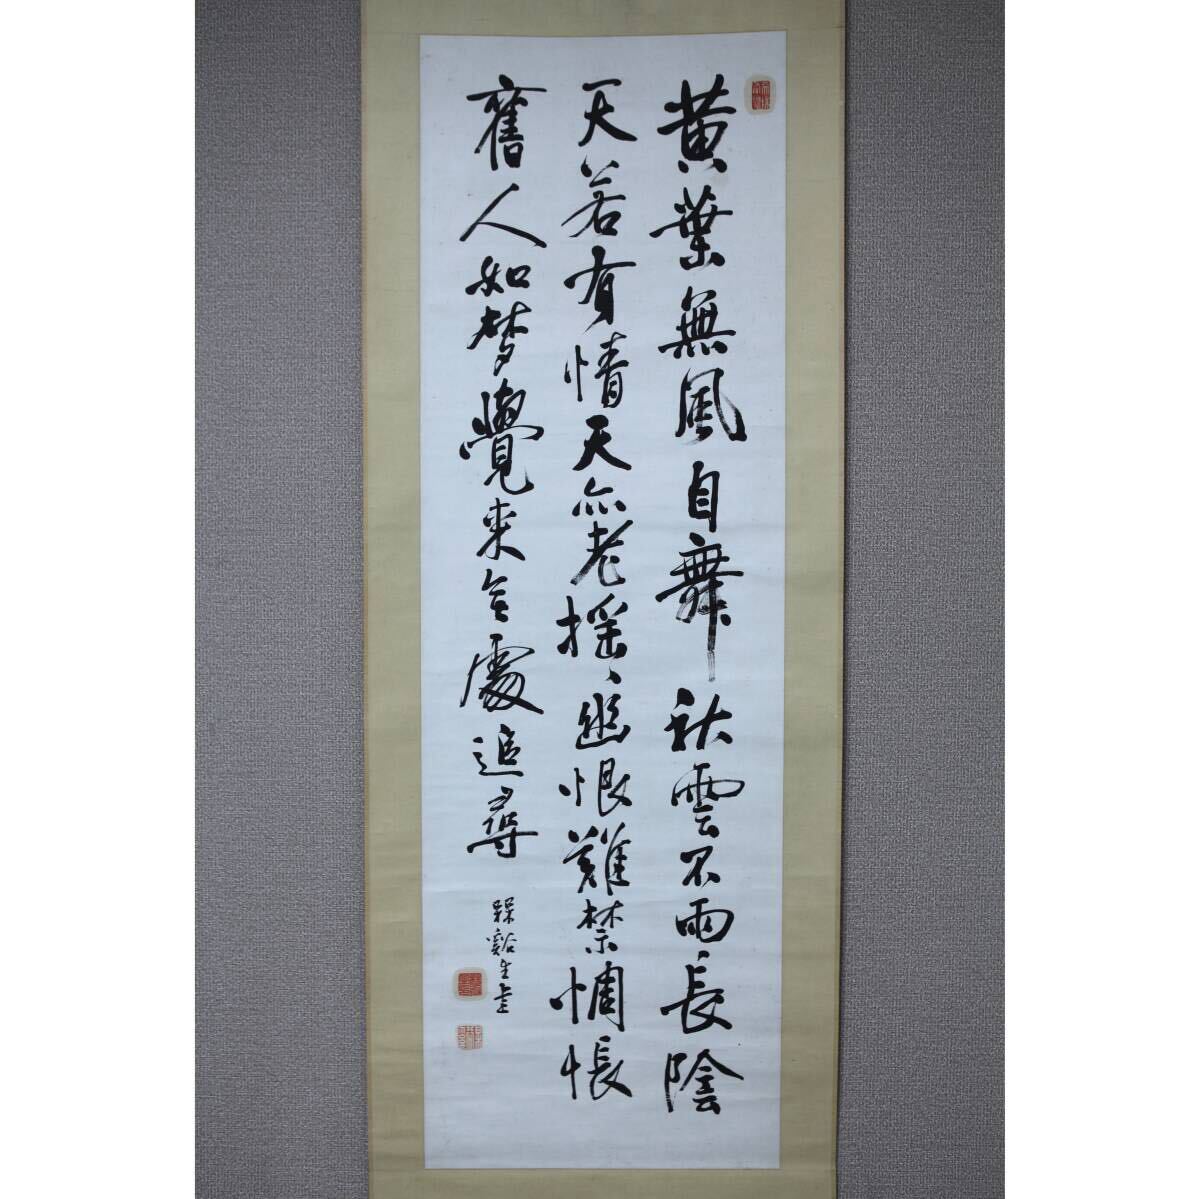 黄葉無風自舞秋雲不雨長陰
天若有情天亦老揺〻幽恨難禁惆悵
舊人如夢覺来無處追尋
槑谿生